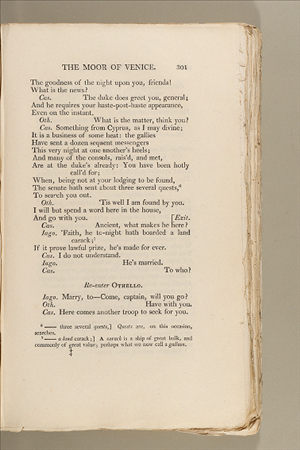 THE MOOR OF VENICE. 301
The goodness of the night upon you, friends!
What is the news?
Cas. The duke does greet you, general;
And he requires your haste-post-haste appearance,
Even on the instant.
Oth. What is the matter, think you?
Cas. Something from Cyprus, as I may divine;
It is a business of some heat: the gallies
Have sent a dozen sequent messengers
This very night at one another's heels;
And many of the consuls, rais'd, and met,
Are at the duke's already: You have been hotly
call'd for;
When, being not at your lodging to be found,
The senate hath sent about three several quests,⁶
To search you out.
Oth. 'Tis well I am found by you.
I will but spend a word here in the house,
And go with you. [Exit.
Cas. Ancient, what makes he here?
Iago. 'Faith, he to-night hath boarded a land
carack;⁷
If it prove lawful prize, he's made for ever.
Cas. I do not understand.
Iago. He's married.
Cas. To who?
Re-enter OTHELLO.
Iago. Marry, to—Come, captain, will you go?
Oth. Have with you.
Cas. Here comes another troop to seek for you.
⁶ —— three several quests,] Quests are, on this occasion,
searches.
⁷ —— a land carack;] A carack is a ship of great bulk, and
commonly of great value; perhaps what we now call a galleon.